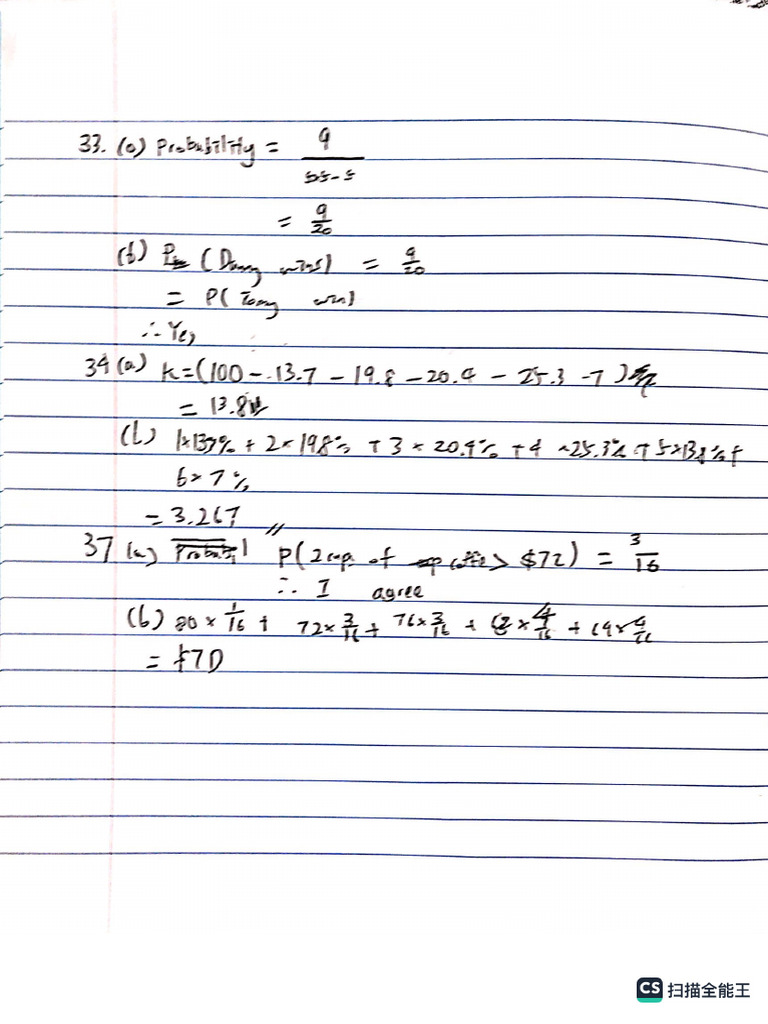 33. (a) Probability = 9
55-5
= 9/20
(b) P (Danny wins) = 9/20
= P( Tony win)
∴ Yes
34 (a) K=(100 - 13.7 - 19.8 - 20.4 - 25.3 - 7)
= 13.8
(b) 1×13.7% + 2×19.8% + 3×20.4% + 4×25.3% + 5×13.8% +
6×7%
= 3.267 //
37 (a) P(2 cups of coffee > $72) = 3/16
∴ I agree
(b) 80 × 1/16 + 72×3/16 + 76×3/16 + 68×4/16 + 64×4/16
= $70
CS 扫描全能王